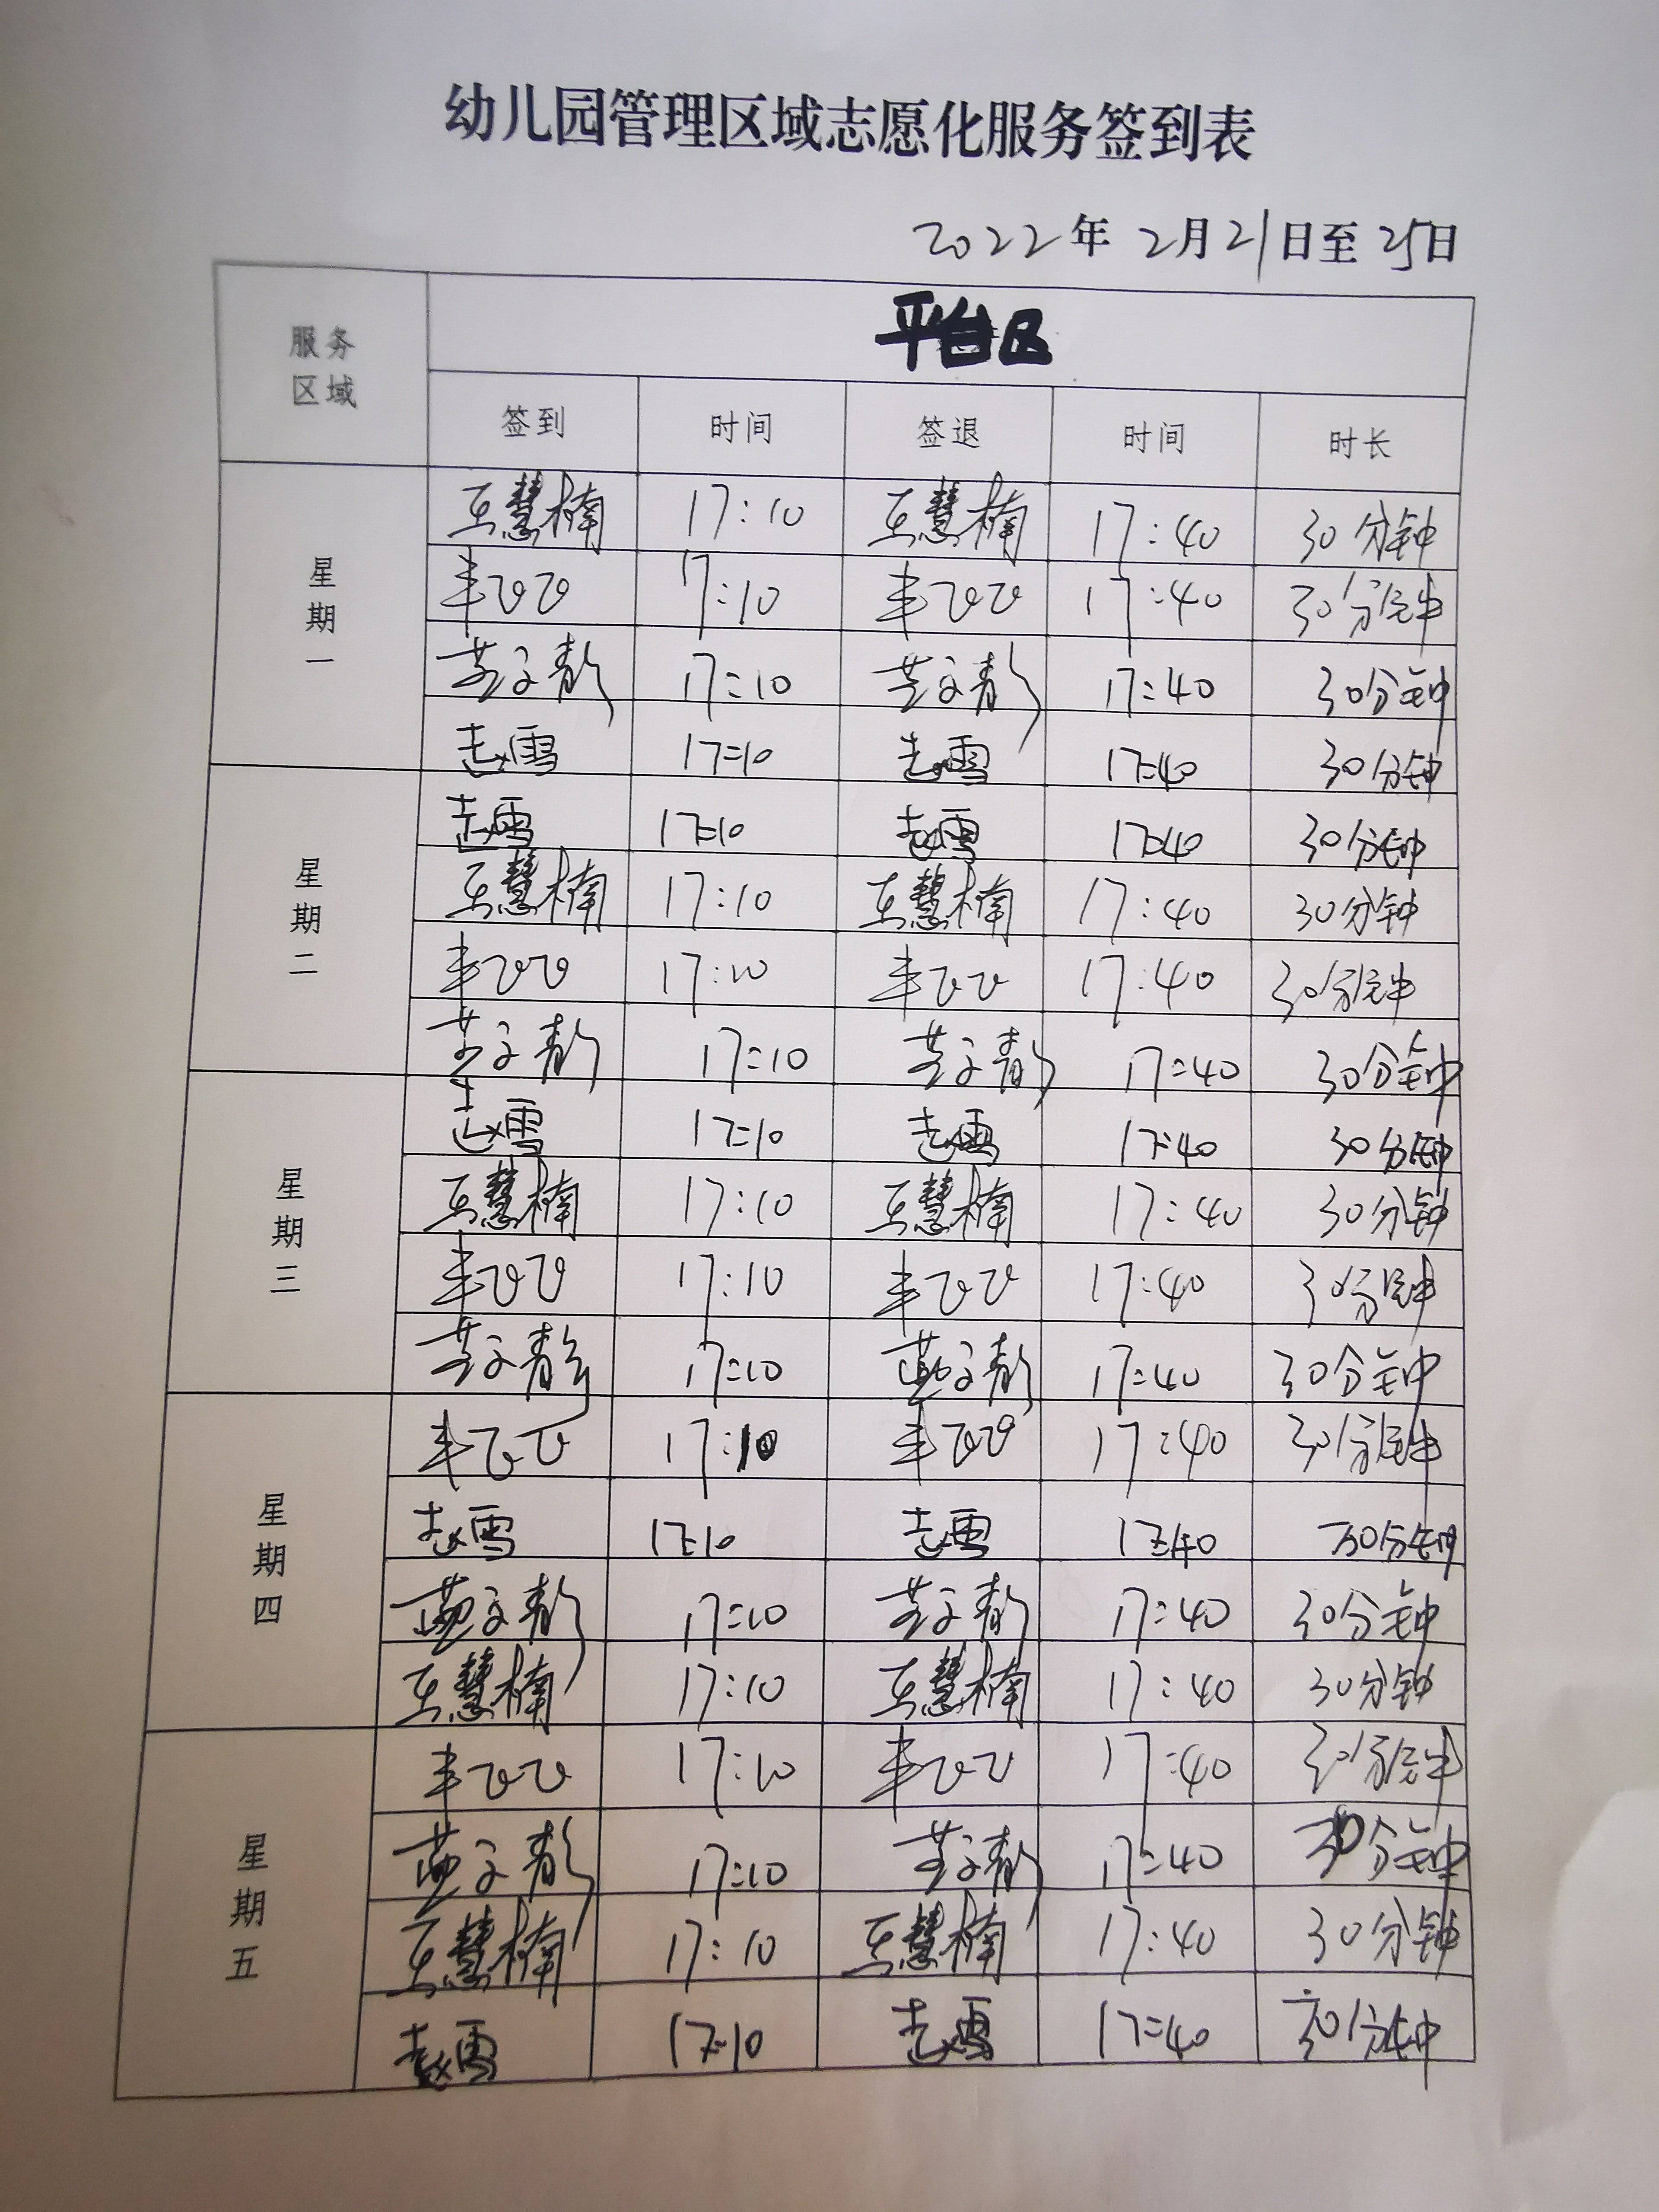 幼儿园管理区域志愿化服务签到表
2022年 2月21日至25日
服务区域 平台区
签到 时间 签退 时间 时长
星期一
王慧楠 17:10 王慧楠 17:40 30分钟
丰飞飞 17:10 丰飞飞 17:40 30分钟
17:10 17:40 30分钟
赵雪 17:10 赵雪 17:40 30分钟
星期二
赵雪 17:10 赵雪 17:40 30分钟
王慧楠 17:10 王慧楠 17:40 30分钟
丰飞飞 17:10 丰飞飞 17:40 30分钟
17:10 17:40 30分钟
星期三
赵雪 17:10 赵雪 17:40 30分钟
王慧楠 17:10 王慧楠 17:40 30分钟
丰飞飞 17:10 丰飞飞 17:40 30分钟
17:10 17:40 30分钟
星期四
丰飞飞 17:10 丰飞飞 17:40 30分钟
赵雪 17:10 赵雪 17:40 30分钟
17:10 17:40 30分钟
王慧楠 17:10 王慧楠 17:40 30分钟
星期五
丰飞飞 17:10 丰飞飞 17:40 30分钟
17:10 17:40 30分钟
王慧楠 17:10 王慧楠 17:40 30分钟
赵雪 17:10 赵雪 17:40 30分钟